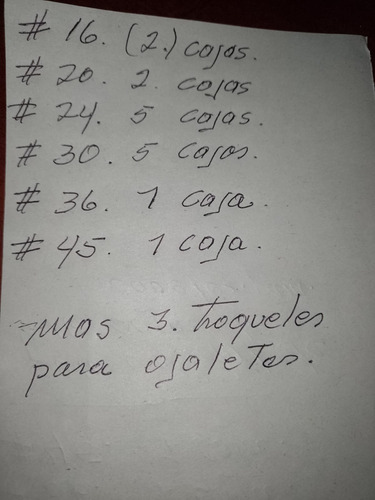 # 16. (2.) cajas.
# 20. 2. cajas
# 24. 5 cajas.
# 30. 5 cajas.
# 36. 1 caja.
# 45. 1 caja.
Mas 3. troqueles
para ojaletes.